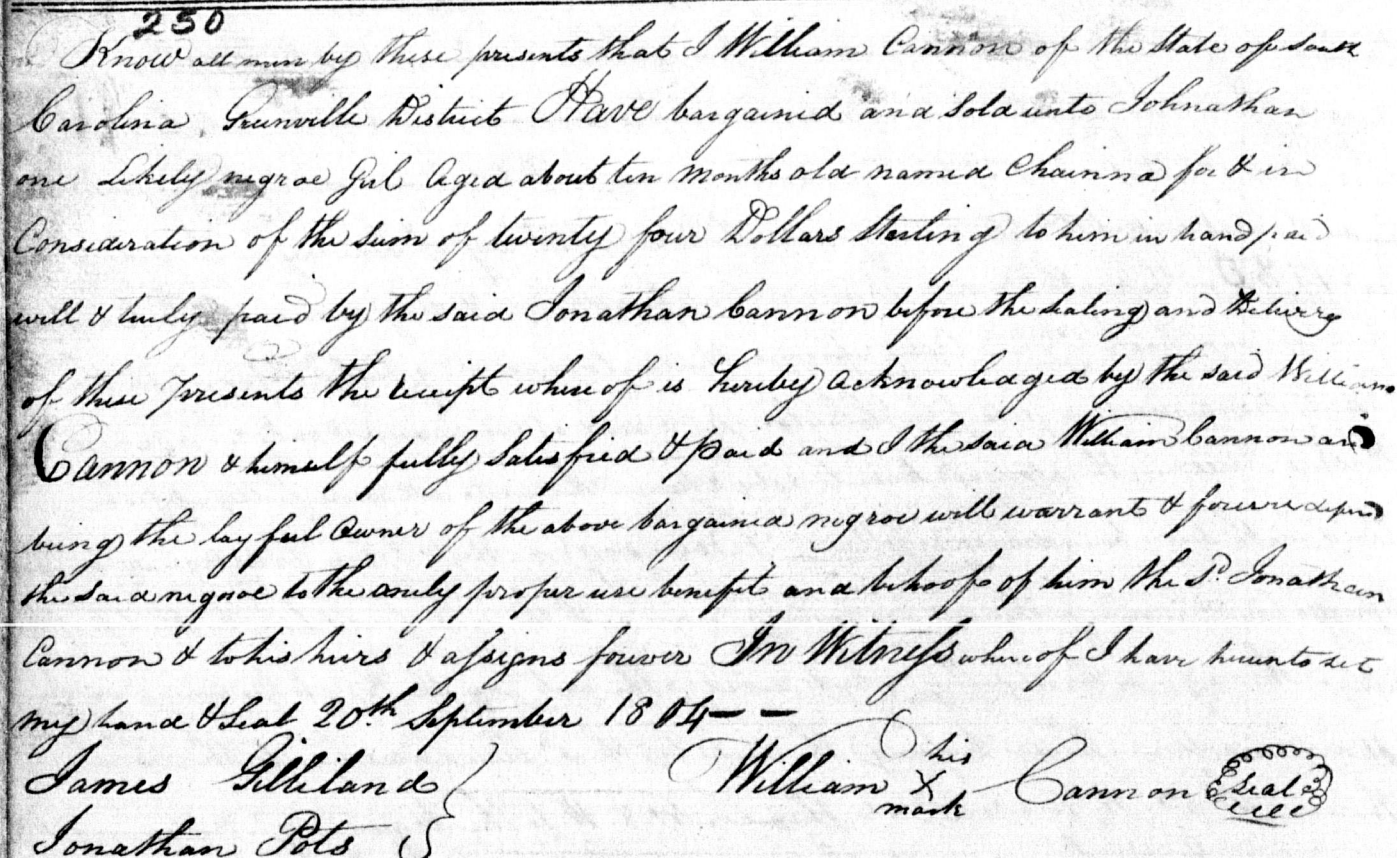 250
Know all men by these presents that I William Cannon of the State of South
Carolina Greenville District Have bargained and Sold unto Johnathan
one Likely negroe Girl Aged about ten months old named Chainna for & in
Consideration of the Sum of twenty four Dollars Sterling to him in hand paid
will & truly paid by the said Jonathan Cannon before the Sealing and
of these Presents the receipt where of is hereby acknowledged by the said William
Cannon & himself fully Satisfied & paid and I the said William Cannon and
being the layful Owner of the above bargained negroe will warrant & forever defend
the said negroe to the only proper use benefit and behoof of him the Sd. Jonathan
Cannon & to his hirs & assigns forever In Witness where of I have hereunto set
my hand & Seal 20th September 1804 — —
James Gilliland } William his X mark Cannon Seal
Jonathan Pots }